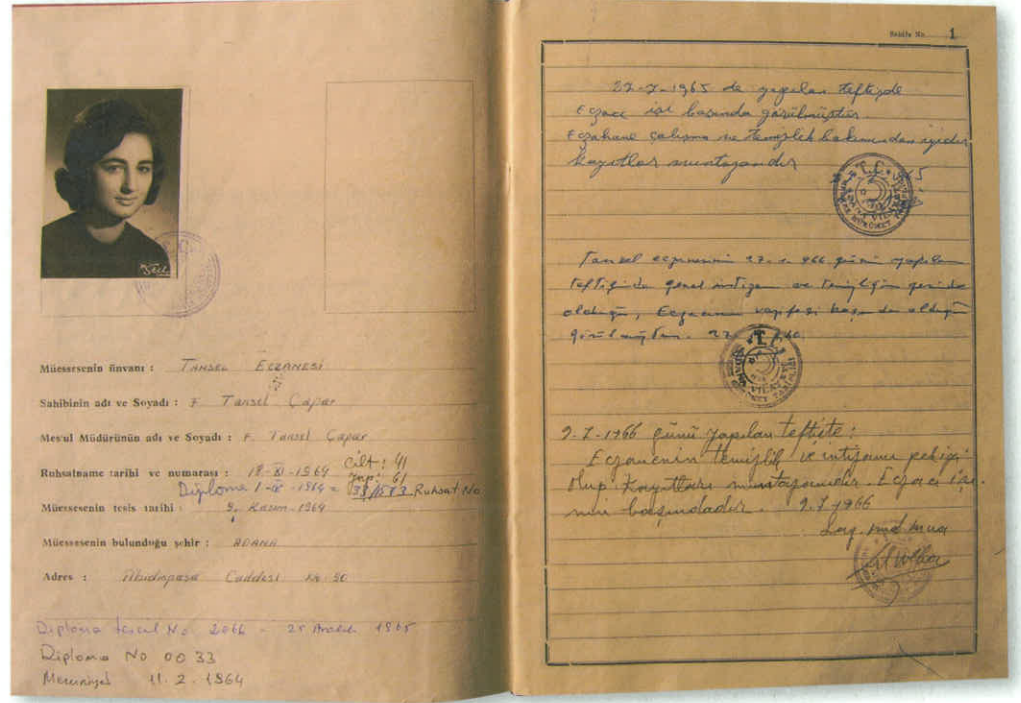 Müessesenin ünvanı : TANSEL ECZANESİ
Sahibinin adı ve Soyadı : F. Tansel Çapar
Mes'ul Müdürünün adı ve Soyadı : F. Tansel Çapar
Cilt : 41
Ruhsatname tarihi ve numarası : 18-XI-1964
Diploma 1- -1964 = Ruhsat No
Müessesenin tesis tarihi : 9. Kasım-1964
Müessesenin bulunduğu şehir : ADANA
Adres : Abidinpaşa Caddesi No 50
Diploma tescil No 2066 - 25 Aralık 1965
Diploma No 0033
Mezuniyet 11.2.1964
Sahife No. 1
27-7-1965 de yapılan teftişde
Eczacı işi başında görülmüştür.
Eczahane çalışma ve temizlik bakımından iyidir
kayıtlar muntazamdır
T.C.
Tansel eczanesinin 27. 966 günü yapılan
teftişinde genel intizam ve temizliğin yerinde
olduğu, Eczacının vazifesi başında olduğu
görülmüştür.
T.C.
9-7-1966 günü yapılan teftişte :
Eczanenin temizlik ve intizamı pek iyi
olup kayıtları muntazamdır. Eczacı işi-
nin başındadır. 9.7.1966